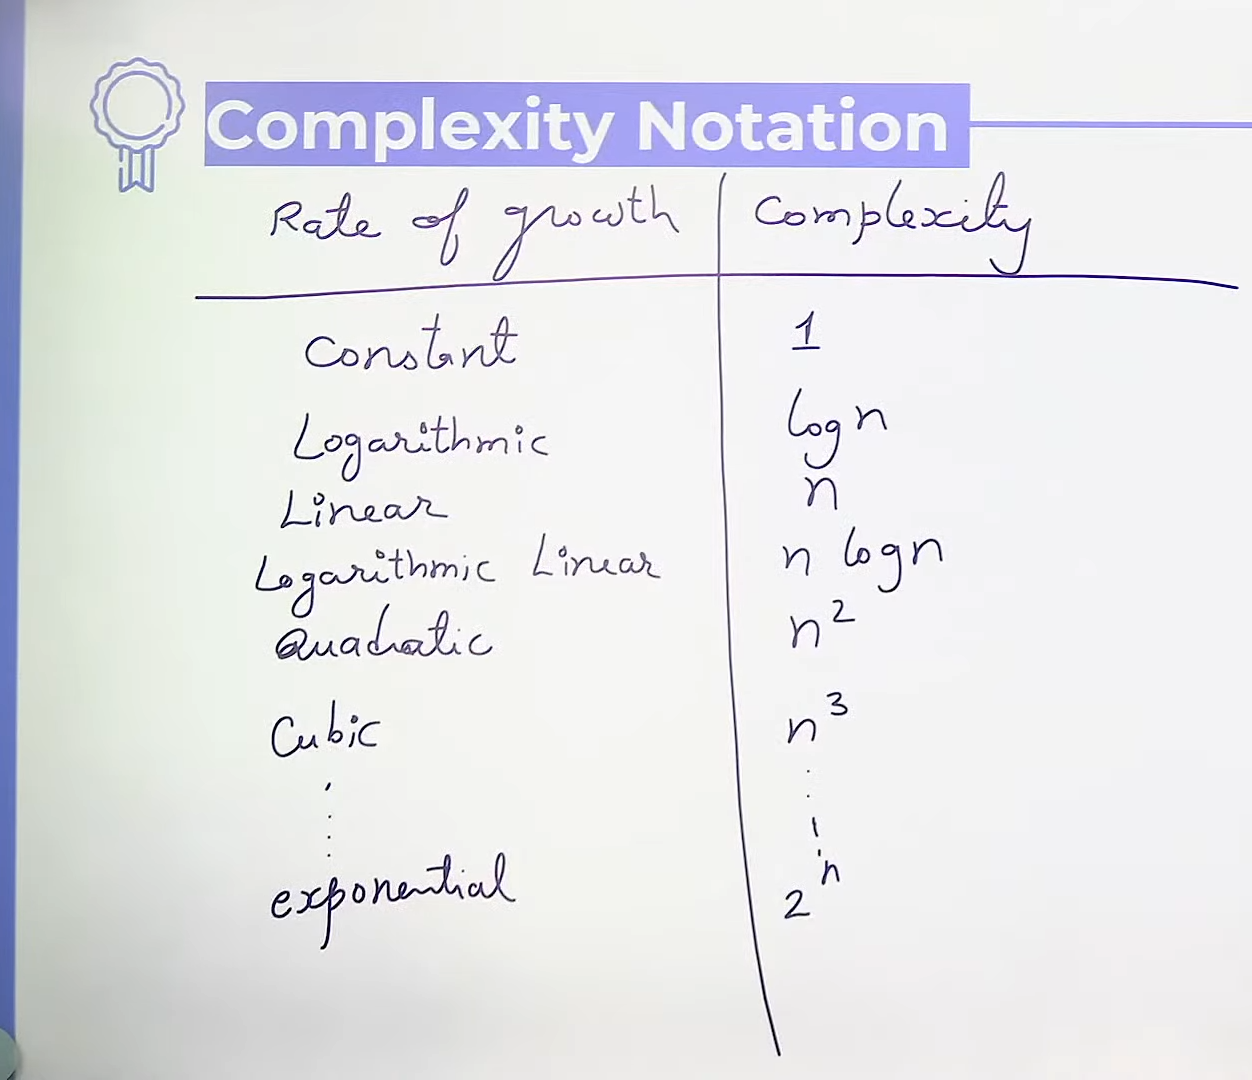 Complexity Notation
Rate of growth Complexity
Constant 1
Logarithmic log n
Linear n
Logarithmic Linear n log n
Quadratic n²
Cubic n³
exponential 2ⁿ